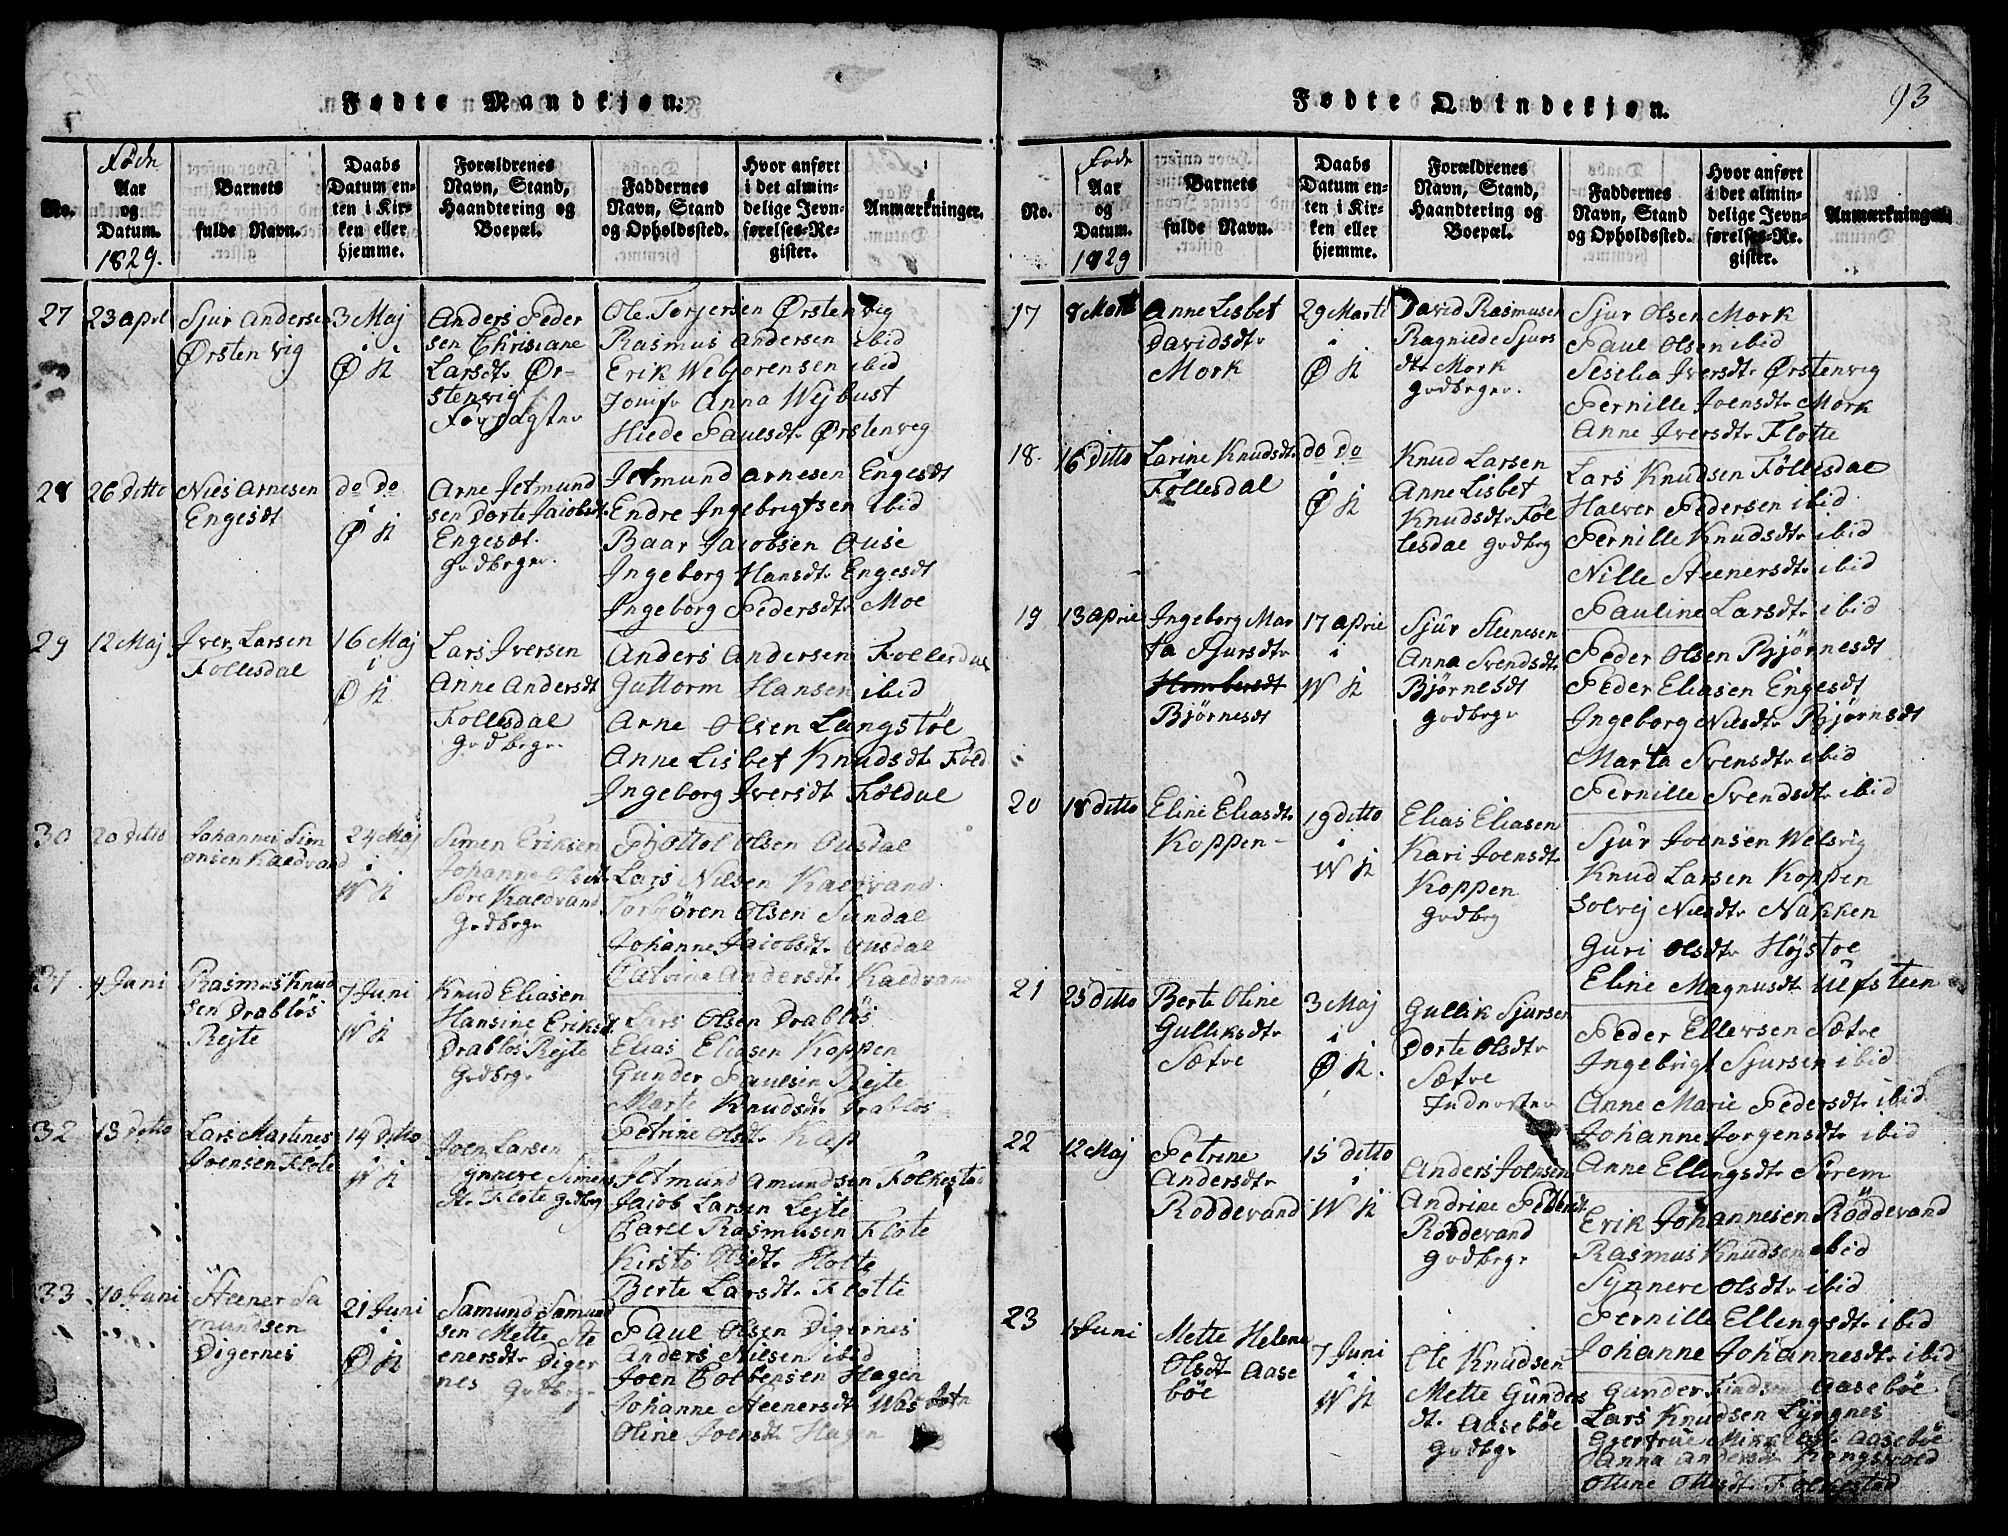 Fødte Mandkjøn.
Føde
No.
Aar og Datum.
1829.
Barnets fulde Navn.
Daabs Datum enten i Kirken eller hjemme.
Forældrenes Navn, Stand, Haandtering og Boepæl.
Faddernes Navn, Stand og Opholdssted.
Hvor anført i det almindelige Jevnførelses-Register.
Anmærkninger.
27
23 april
Sjur Andersen
Ørstenvig
3 Maj
i
Ø K
Anders Peder
sen Chrisiane
Larsdtr Ør-
stenvig
Ole Torjersen Ørstenvig
Rasmus Andersen ibid
Erik Webjørensen ibid
Jomfr Anna Wejbust
Hiede Paulsdtr Ørstenvig
28
26 Ditto
Niels Arnesen
Engesdt
do Do
i
Ø K
Arne Jetmund
sen Dorte Jacobsdtr
Engesæt
Grdbrgr.
Jetmund Arnesen Engesdt
Endre Ingebrigtsen ibid
Baar Jacobsen Ouse
Ingeborg Hansdtr Engesdt
Ingeborg Pedersdtr Moe
29
12 Maj
Iver Larsen
Follesdal
16 Maj
i
Ø K
Lars Iversen
Anne Andersdt
Follesdal
Grdbrgr.
Anders Andersen Follesdal
Guttorm Hansen ibid
Arne Olsen Langstøl
Anne Lisbet Knudsdtr Føld
Ingeborg Iversdt Føldal
30
20 Ditto
Johannes Sim
onsen Kaldvand
24 Maj
i
W K
Simen Eriksen
Johanne Olsdt
Søre Kaldvand
Grdbrgr
Olsen Ousdal
Lars Nilsen Kaldvand
Torbören Olsen Sundal
Johanne Jacobsdtr Ousdal
Catrine Andersdtr Kaldvand
31
4 Juni
Rasmus Knud
sen Drabløs
Rejte
7 Juni
i
W K
Knud Eliasen
Hansine Eriksdt
Drabløs Rejte
Grdbrgr
Lars Olsen Drabløs
Elias Eliasen Koppen
Gunder Paulsen Rejte
Marte Knudsdtr Drabløs
Petrine Olsdtr Kæp
32
13 Ditto
Lars Martines
Joensen Flote
14 Ditto
i
W K
Joen Larsen
Synnere Simens
dtr Flote Grdbrg
Jetmund Amundsen Folkestad
Jacob Larsen Lejte
Carll Rasmusen Flote
Kirsti Olsdtr Holte
Berte Larsdtr Flotte
33
10 Juni
Steener Sa
mundsen
Digernes
21 Juni
i
Ø K
Samund Samund
sen Mette Ste
enersdtr Diger
nes Grdbrgr
Paul Olsen Digernes
Anders Nielsen ibid
Joen Colbensen Hagen
Johanne Steenersdt Wasbotn
Oline Joensdt Hagen
Fødte Qvindekjøn.
93
Føde
No.
Aar og Datum.
1829
Barnets fulde Navn.
Daabs Datum enten i Kirken eller hjemme.
Forældrenes Navn, Stand, Haandtering og Boepæl.
Faddernes Navn, Stand og Opholdssted.
Hvor anført i det almindelige Jevnførelses-Register.
Anmærkninger.
17
8 Marti
Anne Lisbet
Davidsdtr
Mork
29 Marti
i
Ø K
David Rasmusen
Ragnilde Sjurs
dtr Mork
Grdbrgr.
Sjur Olsen Mork
Paul Olsen ibid
Seselia Iversdtr Ørstenvig
Pernille Joensdtr Mork
Anne Iversdtr Flotte
18.
16 Ditto
Larine Knudsdtr
Føllesdal
do do
i
Ø K
Knud Larsen
Anne Lisbet
Knudsdtr Føl
lesdal Grdbrg
Lars Knudsen Føllesdal
Halver Pedersen ibid
Pernille Knudsdtr ibid
Nille Steenersdtr ibid
Pauline Larsdtr ibid
19
13 April
Ingeborg Mar
ta Sjursdtr
Bjørnesdt
17 April
i
W K
Sjur Steenesen
Anna Svendsdtr
Bjørnesdt
Grdbrgr
Peder Olsen Bjørnesdt
Peder Eliasen Engesdt
Ingeborg Nilsdtr Bjørnsdt
Marta Svensdtr ibid
Pernille Svendsdtr ibid
20
18 Ditto
Eline Eliasdtr
Koppen
19 ditto
i
W K
Elias Eliasen
Kari Joensdtr
Koppen
Grdbrg
Sjur Joensen Welsvig
Knud Larsen Koppen
Solvej Nilsdtr Nakken
Guri Olsdtr Højstøe
Eline Magnusdt Ulfsteen
21
25 Ditto
Berte Oline
Gulliksdtr
Sætre
3 Maj
i
Ø K.
Gullik Sjursen
Dorte Olsdtr
Sætre
Peder Ellevsen Sætre
Ingebrigt Sjursen ibid
Anne Marie Pedersdtr ibid
Johanne Jorgensdtr ibid
Anne Ellingsdtr Sørem
22
12 Maj
Petrine
Andersdtr
Roddevand
15 ditto
i
W K
Anders Joensen
Andrine Pedersdt
Roddevand
Grdbrgr
Erik Johannesen Röddevand
Rasmus Knudsen ibid
Synnere Olsdtr ibid
Pernille Ellingsdtr ibid
Johanne Johannesdtr ibid
23
1 Juni
Mette Helene
Olsdt Aase
bøe
7 Juni
i
W K
Ole Knudsen
Mette Gunders
dtr Aasebøe
Grdbrgr
Gunder Findsen Aasebøe
Lars Knudsen Lyngnes
Aasebøe
Hanna Andersdt Ringsvold
Oline Olsdtr Folkestad